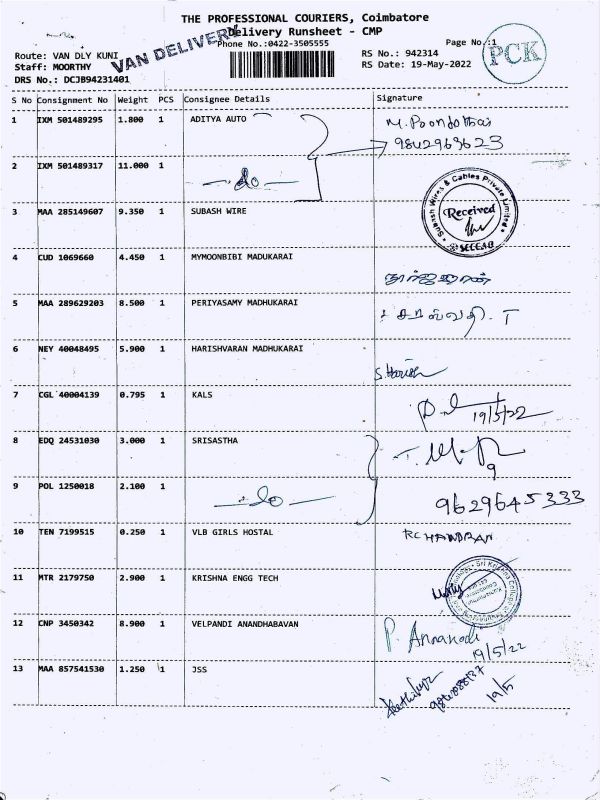 THE PROFESSIONAL COURIERS, Coimbatore
Delivery Runsheet - CMP
Phone No.:0422-3505555
Page No.:1
VAN DELIVERY
PCK
Route: VAN DLY KUNI
RS No.: 942314
Staff: MOORTHY
RS Date: 19-May-2022
DRS No.: DCJB94231401
S No Consignment No Weight PCS Consignee Details Signature
1 IXM 501489295 1.800 1 ADITYA AUTO
9842963623
2 IXM 501489317 11.000 1 do
3 MAA 285149607 9.350 1 SUBASH WIRE
Subash Wires & Cables Private Limited
Received
4 CUD 1069660 4.450 1 MYMOONBIBI MADUKARAI
5 MAA 289629203 8.500 1 PERIYASAMY MADHUKARAI
6 NEY 40048495 5.900 1 HARISHVARAN MADHUKARAI
S.Harish
7 CGL 40004139 0.795 1 KALS
19/5/22
8 EDQ 24531030 3.000 1 SRISASTHA
9 POL 1250018 2.100 1 do
9629645333
10 TEN 7199515 0.250 1 VLB GIRLS HOSTAL
RCHANDRAN
11 MTR 2179750 2.900 1 KRISHNA ENGG TECH
12 CNP 3450342 8.900 1 VELPANDI ANANDHABAVAN
19/5/22
13 MAA 857541530 1.250 1 JSS
19/5